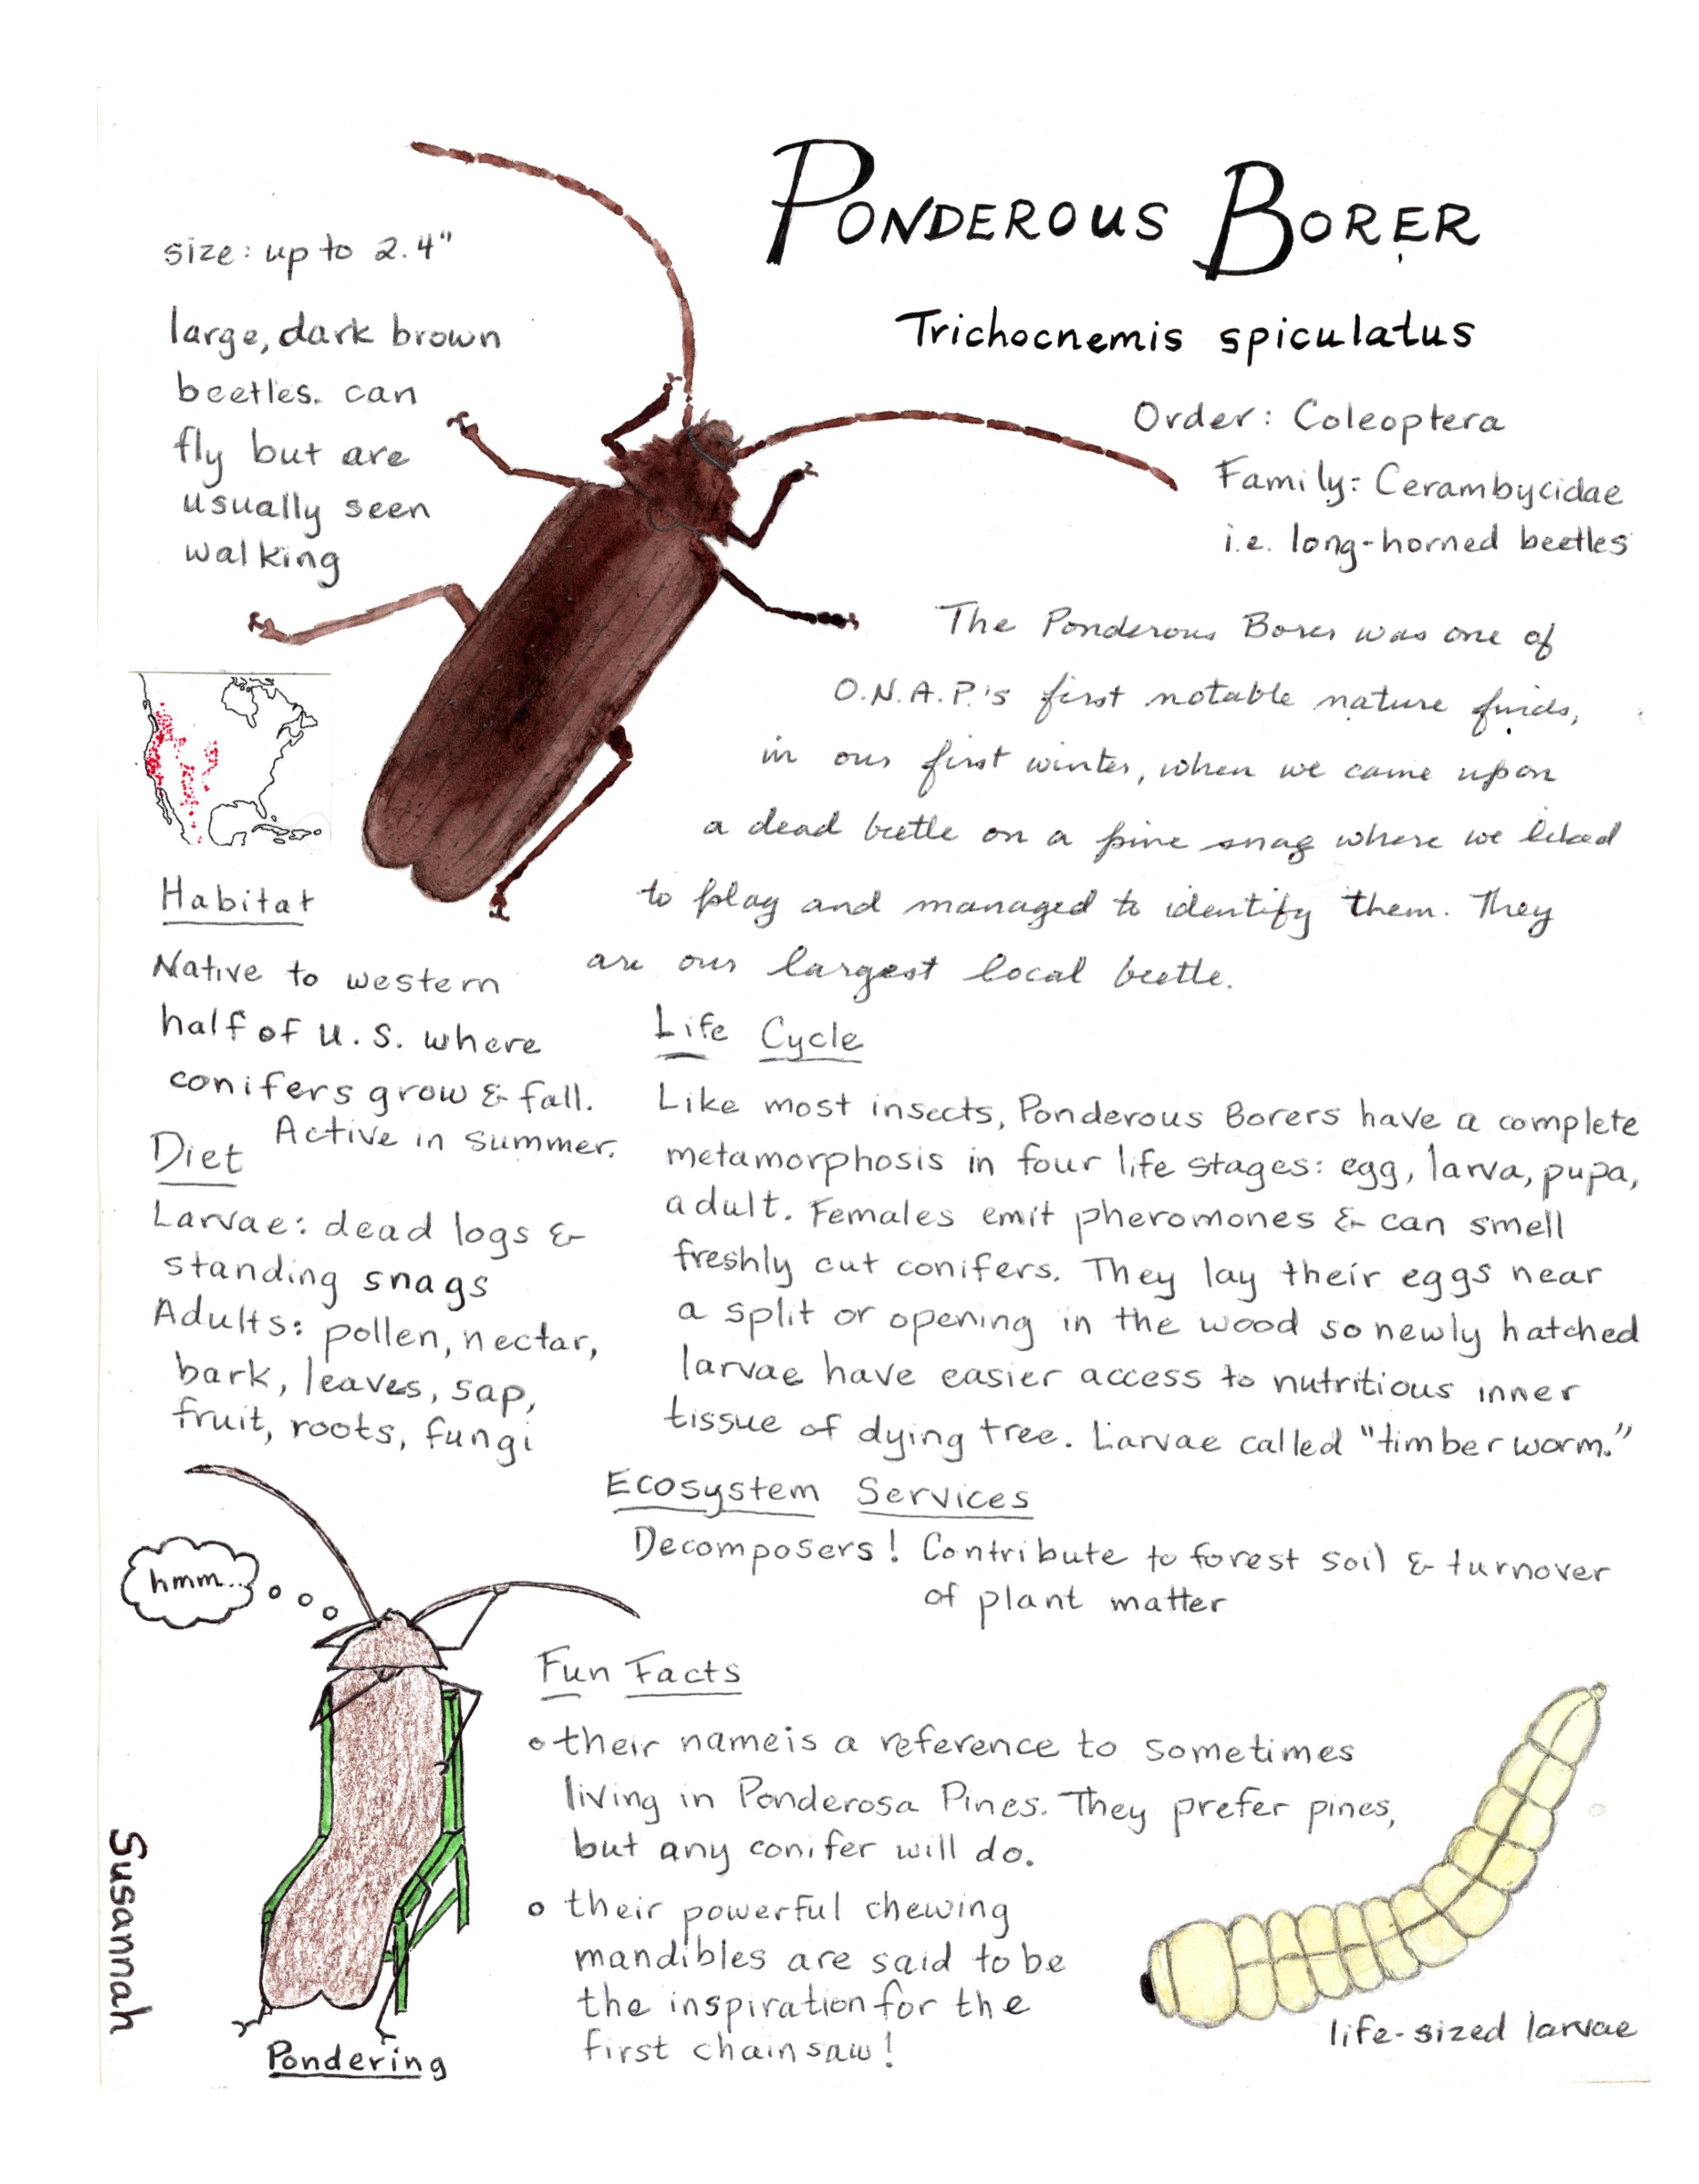 PONDEROUS BORER
Trichocnemis spiculatus
Order: Coleoptera
Family: Cerambycidae
i.e. long-horned beetles
size: up to 2.4"
large, dark brown
beetles. can
fly but are
usually seen
walking
The Ponderous Borer was one of
O.N.A.P.'s first notable nature finds,
in our first winter, when we came upon
a dead beetle on a pine snag where we liked
to play and managed to identify them. They
are our largest local beetle.
Habitat
Native to western
half of U.S. where
conifers grow & fall.
Active in summer.
Diet
Larvae: dead logs &
standing snags
Adults: pollen, nectar,
bark, leaves, sap,
fruit, roots, fungi
Life Cycle
Like most insects, Ponderous Borers have a complete
metamorphosis in four life stages: egg, larva, pupa,
adult. Females emit pheromones & can smell
freshly cut conifers. They lay their eggs near
a split or opening in the wood so newly hatched
larvae have easier access to nutritious inner
tissue of dying tree. Larvae called "timber worm."
Ecosystem Services
Decomposers! Contribute to forest soil & turnover
of plant matter
hmm...
Pondering
Fun Facts
their name is a reference to sometimes
living in Ponderosa Pines. They prefer pines,
but any conifer will do.
their powerful chewing
mandibles are said to be
the inspiration for the
first chainsaw!
life-sized larvae
Susannah